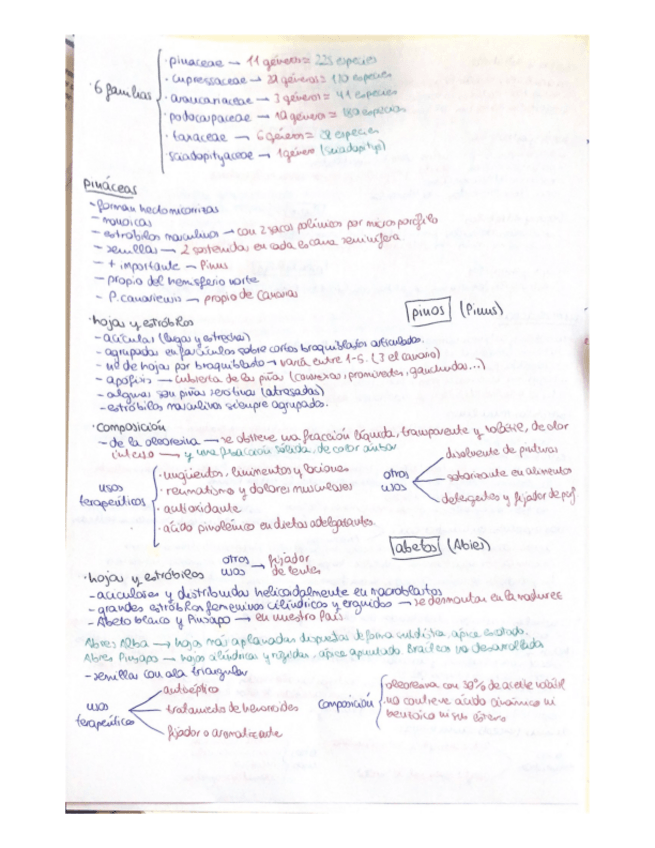 · 6 familias
· pinaceae → 11 géneros = 225 especies
· cupressaceae → géneros = 130 especies
· araucariaceae → 3 géneros = 41 especies
· podocarpaceae → géneros = especies
· taxaceae → 6 géneros = 28 especies
· sciadopityaceae → 1 género (sciadopitys)
pináceas
- forman hectomicorrizas
- monoicas
- estróbilos masculinos → con 2 sacos polínicos por microsporófilo
- semillas → 2 sostenidas en cada escama seminífera
- + importante → Pinus
- propio del hemisferio norte
- P. canariensis → propio de Canarias
pinos (Pinus)
· hojas y estróbilos
- acículas (largas y estrechas)
- agrupadas en fascículos sobre cortos braquiblastos articulados.
- nº de hojas por braquiblasto → varía entre 1-5. (3 el canario)
- apófisis → cubierta de la piña (convexas, prominentes, ganchudas...)
- algunas son piñas serotinas (atrasadas)
- estróbilos masculinos siempre agrupados.
· Composición
- de la oleoresina → se obtiene una fracción líquida, transparente y volátil, de olor
intenso → y una fracción sólida, de color ámbar
usos terapéuticos
· ungüentos, linimentos y lociones
· reumatismo y dolores musculares
· antioxidante
· ácido pinolénico en dietas adelgazantes.
otros usos
disolvente de pinturas
saborizante en alimentos
detergentes y fijador de perf
abetos (Abies)
· hojas y estróbilos
otros usos → fijador de lentes
- aciculares y distribuidas helicoidalmente en macroblastos
- grandes estróbilos femeninos cilíndricos y erguidos → se desmontan en la madurez
- Abeto blanco y Pinsapo → en nuestro país
Abies Alba → hojas más aplanadas dispuestas de forma ápice escotado.
Abies Pinsapo → hojas cilíndricas y rígidas, ápice apuntado. Brácteas no desarrolladas
- semillas con ala triangular
usos terapéuticos
antiséptico
tratamiento de hemorroides
fijador o aromatizante
composición
oleoresina con 30% de aceite volátil
no contiene ácido cinámico ni
benzoico ni sus ésteres